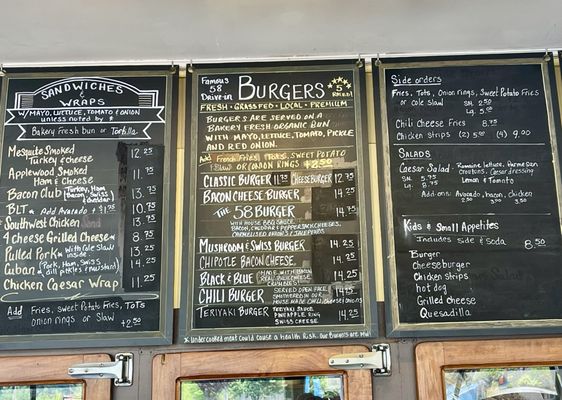 SANDWICHES
& WRAPS
W/ MAYO, LETTUCE, TOMATO & ONION
unless noted by *
Bakery Fresh bun or Tortilla
Mesquite Smoked
Turkey & cheese 12.25
Applewood Smoked
Ham & Cheese
Bacon Club (Turkey, Ham, Bacon, Swiss & cheddar) 13.75
BLT Add Avocado + $1.75 10.75
Southwest Chicken
4 cheese Grilled Cheese 8.75
Pulled Pork with Cole Slaw 13.25
Cuban (Pork, Ham, Swiss, dill pickles & mustard) 14.25
Chicken Caesar Wrap 11.25
Add Fries, Sweet Potato Fries, Tots
onion rings or Slaw + 2.50
Famous
58
Drive-in
BURGERS
FRESH · GRASSFED · LOCAL · PREMIUM
BURGERS ARE SERVED ON A
BAKERY FRESH ORGANIC BUN
WITH MAYO, LETTUCE, TOMATO, PICKLE
AND RED ONION.
Add French Fries, Tots, Sweet Potato
Slaw or Onion Rings +2.50
CLASSIC BURGER 11.75 CHEESEBURGER 12.75
BACON CHEESE BURGER 14.25
THE 58 BURGER 14.75
WITH HOUSE BBQ SAUCE,
BACON, CHEDDAR & PEPPERJACK CHEESES,
MUSHROOM & SWISS BURGER 14.25
CHIPOTLE BACON CHEESE 14.25
BLACK & BLUE 14.25
CHILI BURGER 14.50
TERIYAKI BURGER TERIYAKI SAUCE, PINEAPPLE RING, SWISS CHEESE 14.25
* Undercooked meat could cause a health Risk. Our Burgers are
Side orders
Fries, Tots, Onion rings, Sweet Potato Fries
or cole slaw SM 2.50
Lg. 5.00
Chili Cheese Fries 8.75
Chicken strips (2) 5.00 (4) 9.00
SALADS
Caesar Salad Romaine lettuce, Parmesan
SM 5.75 Croutons, Caesar Dressing
LG 8.75 Lemon & Tomato
Add-ons: Avocado, bacon, chicken
Kids & Small Appetites
Includes side & Soda 8.50
Burger
Cheeseburger
Chicken strips
hot dog
Grilled Cheese
Quesadilla